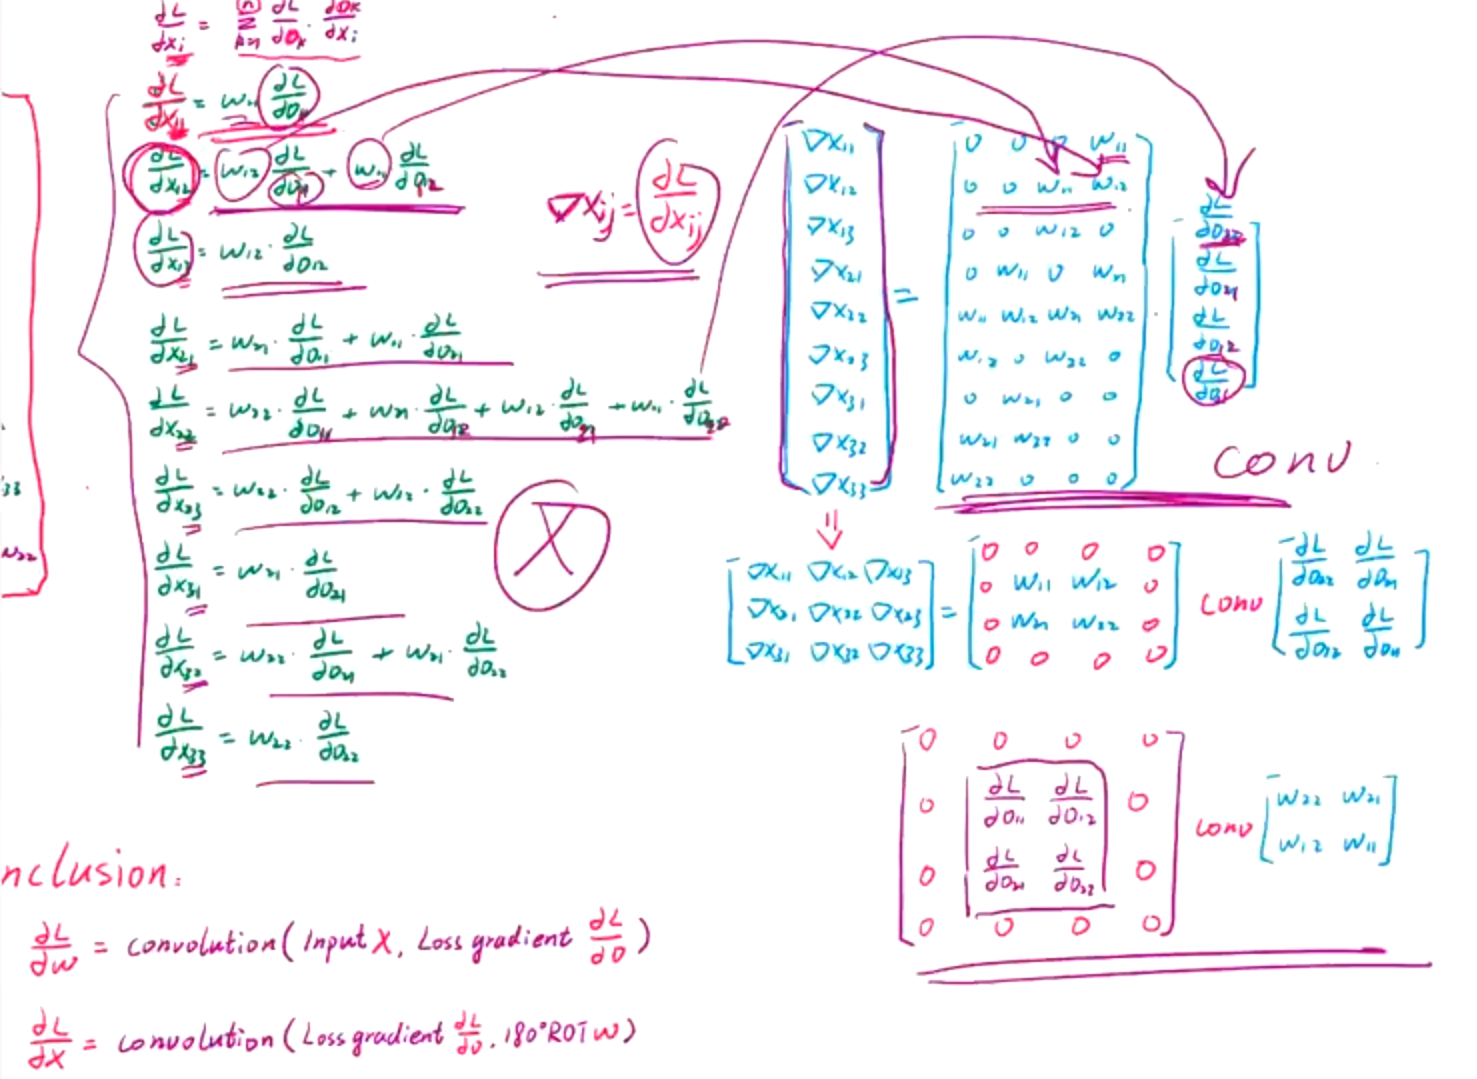 ∂L/∂xᵢ = Σ ∂L/∂Oₖ · ∂Oₖ/∂xᵢ
∂L/∂x₁₁ = w₁₁ ∂L/∂O₁₁
∂L/∂x₁₂ = w₁₂ ∂L/∂O₁₁ + w₁₁ ∂L/∂O₁₂
∂L/∂x₁₃ = w₁₂ · ∂L/∂O₁₂
∂L/∂x₂₁ = w₂₁ · ∂L/∂O₁₁ + w₁₁ · ∂L/∂O₂₁
∂L/∂x₂₂ = w₂₂ · ∂L/∂O₁₁ + w₂₁ · ∂L/∂O₁₂ + w₁₂ · ∂L/∂O₂₁ + w₁₁ · ∂L/∂O₂₂
∂L/∂x₂₃ = w₂₂ · ∂L/∂O₁₂ + w₁₂ · ∂L/∂O₂₂
∂L/∂x₃₁ = w₂₁ · ∂L/∂O₂₁
∂L/∂x₃₂ = w₂₂ · ∂L/∂O₂₁ + w₂₁ · ∂L/∂O₂₂
∂L/∂x₃₃ = w₂₂ · ∂L/∂O₂₂
X
33
w₂₂
∇xᵢⱼ = ∂L/∂xᵢⱼ
∇x₁₁
∇x₁₂
∇x₁₃
∇x₂₁
∇x₂₂
∇x₂₃
∇x₃₁
∇x₃₂
∇x₃₃
=
0 0 0 w₁₁
0 0 w₁₁ w₁₂
0 0 w₁₂ 0
0 w₁₁ 0 w₂₁
w₁₁ w₁₂ w₂₁ w₂₂
w₁₂ 0 w₂₂ 0
0 w₂₁ 0 0
w₂₁ w₂₂ 0 0
w₂₂ 0 0 0
·
∂L/∂O₂₂
∂L/∂O₂₁
∂L/∂O₁₂
∂L/∂O₁₁
conv
⇓
∇x₁₁ ∇x₁₂ ∇x₁₃
∇x₂₁ ∇x₂₂ ∇x₂₃
∇x₃₁ ∇x₃₂ ∇x₃₃
=
0 0 0 0
0 w₁₁ w₁₂ 0
0 w₂₁ w₂₂ 0
0 0 0 0
conv
∂L/∂O₂₂ ∂L/∂O₂₁
∂L/∂O₁₂ ∂L/∂O₁₁
0 0 0 0
0 ∂L/∂O₁₁ ∂L/∂O₁₂ 0
0 ∂L/∂O₂₁ ∂L/∂O₂₂ 0
0 0 0 0
conv
w₂₂ w₂₁
w₁₂ w₁₁
nclusion:
∂L/∂w = convolution( Input X, Loss gradient ∂L/∂O )
∂L/∂X = convolution ( Loss gradient ∂L/∂O, 180°ROT W )